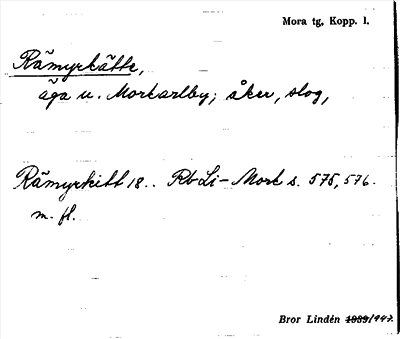 Mora tg, Kopp. l.
Råmyrkätte,
äga u. Morkarlby; åker, slog,
Råmyrkitt 18.. Rb Li-Mork s. 575, 576.
m. fl.
Bror Lindén 1939/1947.